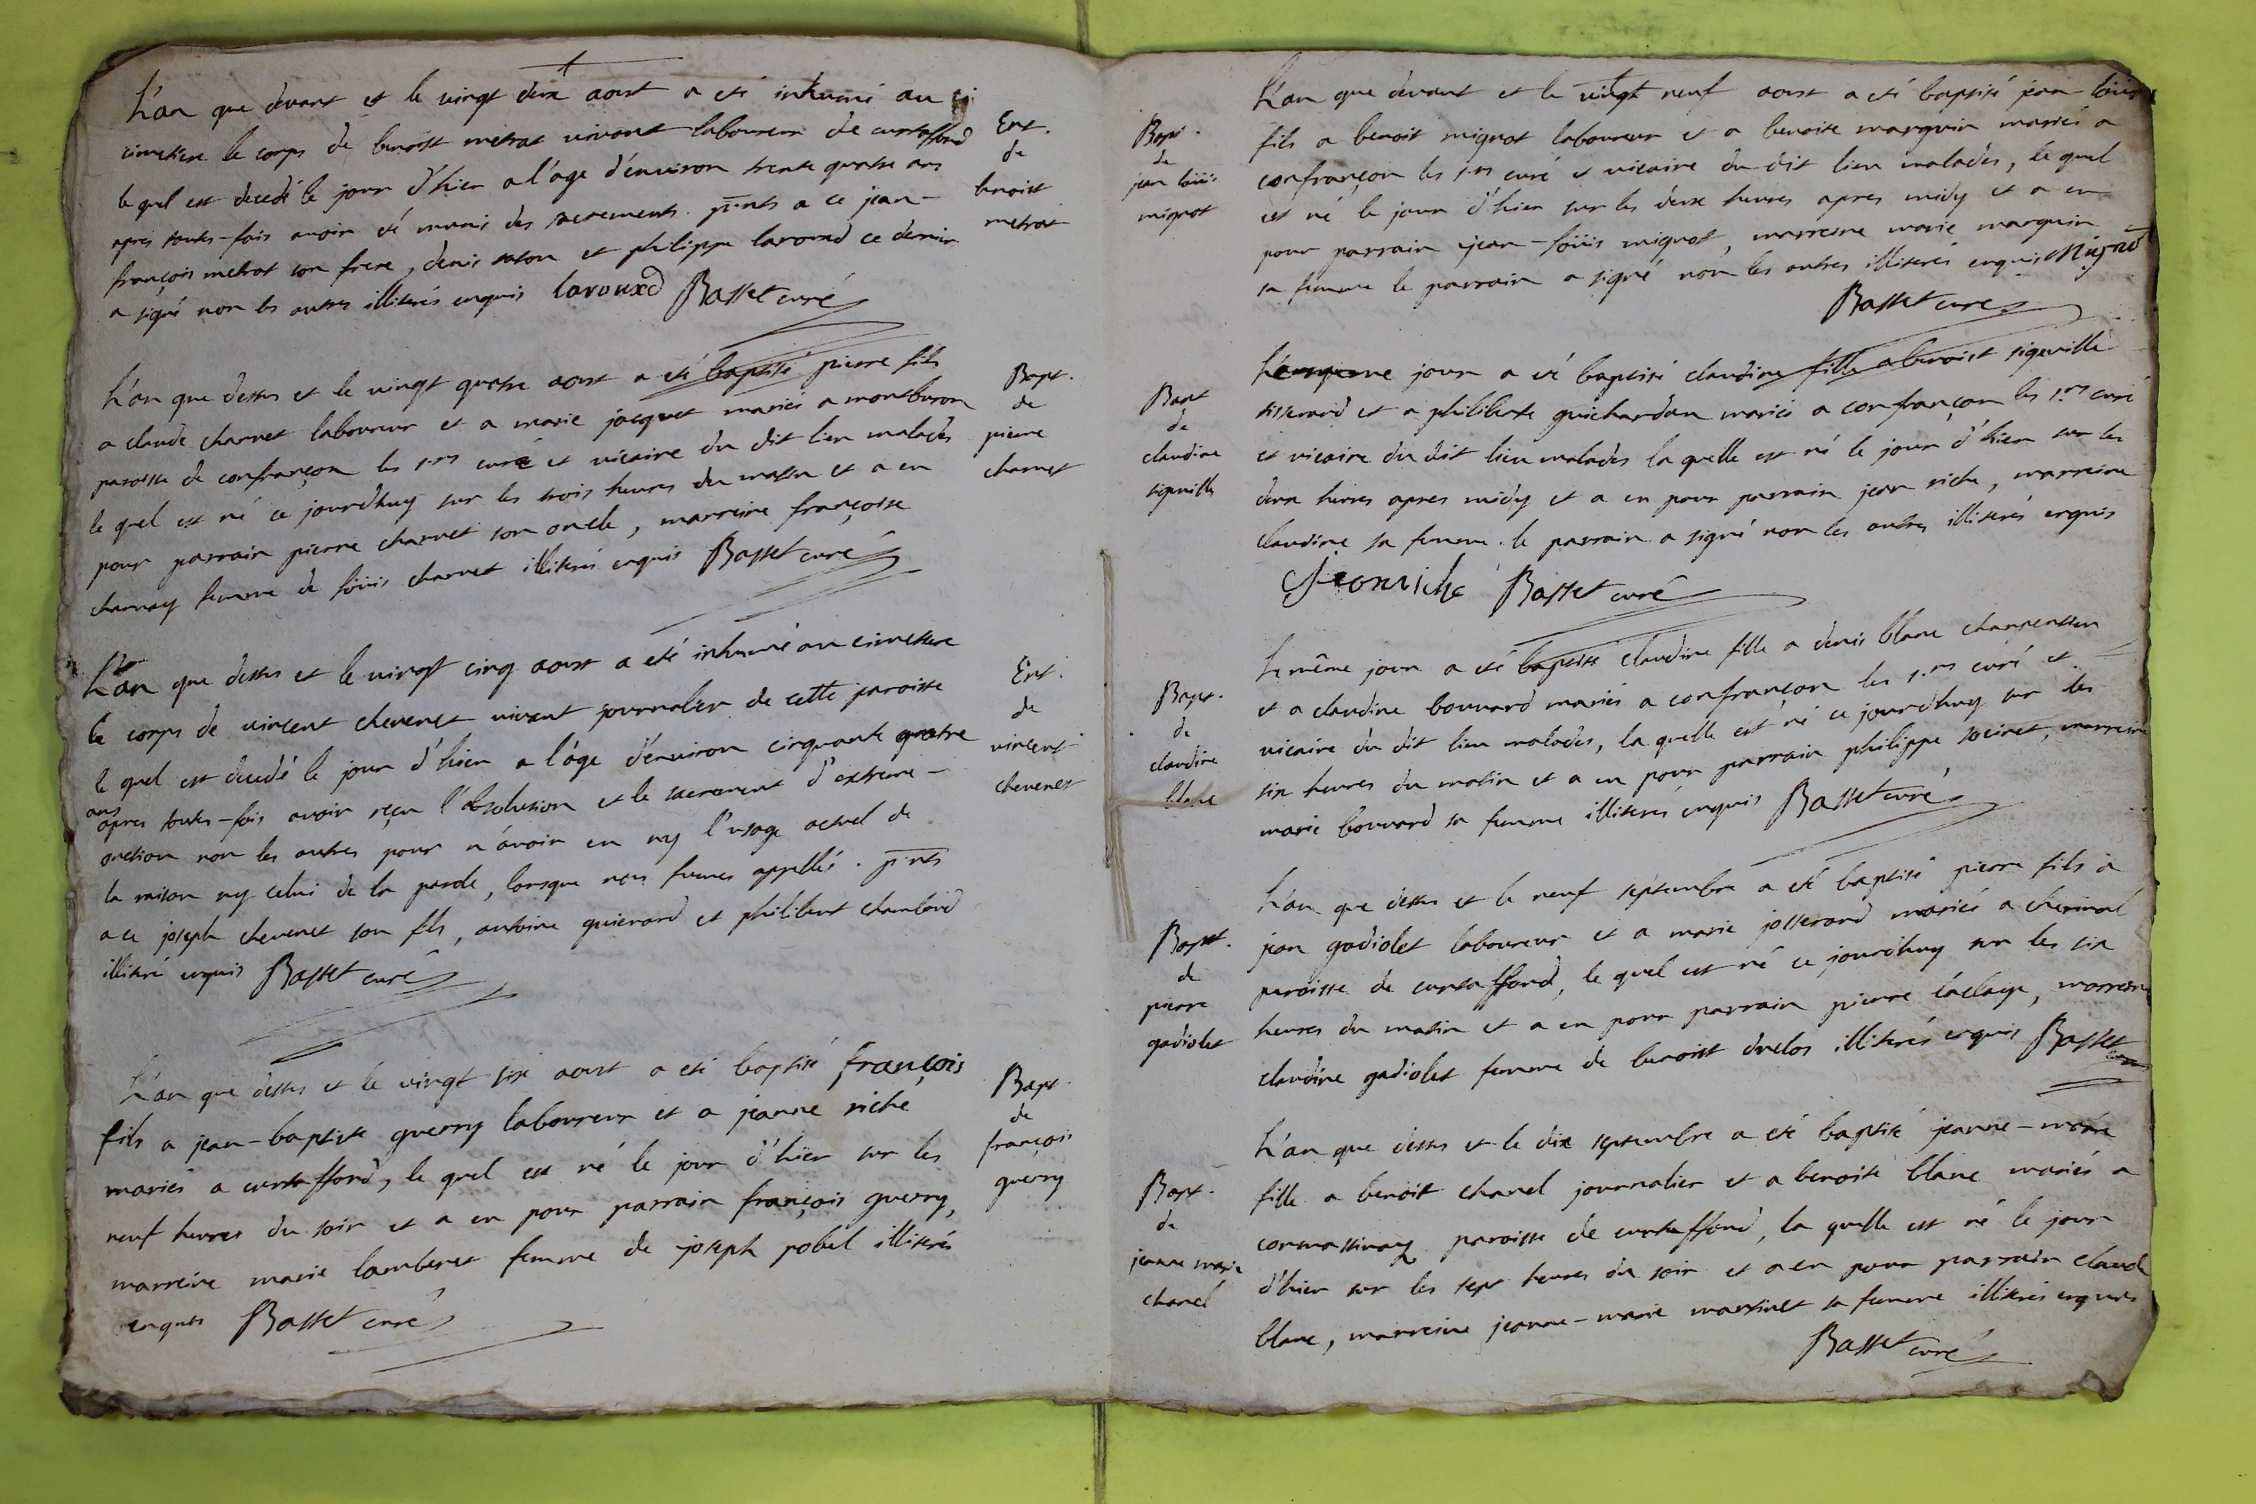 L'an que devant et le vingt deux aoust a eté inhumé au
cimetiere le corps de benoist metrat vivant laboureur de curtaffond
le quel est decedé le jour d'hier a l'âge d'environ trente quatre ans
apres toutes-fois avoir eté muni des sacrements. p.nts a ce jean-
françois metrat son frere, denis et philippe laroued ce dernier
a signé non les autres illiterés enquis Basset curé
Ent.
de
benoist
metrat
L'an que dessus et le vingt quatre aoust a eté baptisé pierre fils
a claude charnet laboureur et a marie jacquet mariés a montburon
paroisse de confrançon les s.rs curé et vicaire du dit lieu malades
le quel est né ce jourdhuy sur les trois heures du matin et a eu
pour parrain pierre charnet son oncle, marreine françoise
charnay femme de loüis charnet illiterés enquis Basset curé
Bapt.
de
pierre
charnet
L'an que dessus et le vingt cinq aoust a eté inhumé au cimettere
le corps de vincent chevenet vivant journalier de cette paroisse
le quel est decedé le jour d'hier a l'âge d'environ cinquante quatre
ans
apres toutes-fois avoir reçu l'absolution et le sacrement d'extreme-
onction non les autres pour n'avoir eu ny l'usage actuel de
la raison ny celui de la parole, lorsque nous fumes appellés. p.nts
a ce joseph chevenet son fils, antoine guierard et philibert chambard
illiteré enquis Basset curé
Ent.
de
vincent
chevenet
L'an que dessus et le vingt six aoust a eté baptisé françois
fils a jean-baptiste guerry laboureur et a jeanne riche
mariés a curtaffond, le quel est né le jour d'hier sur les
neuf heures du soir et a eu pour parrain françois guerry,
marreine marie lamberet femme de joseph pobel illiterés
enquis Basset curé
Bapt.
de
françois
guerry
L'an que devant et le vingt neuf aoust a eté baptisé jean-loüis
fils a benoit mignot laboureur et a benoite marguin mariés a
confrançon les s.rs curé et vicaire du dit lieu malades, le quel
est né le jour d'hier sur les deux heures apres midy et a eu
pour parrain jean-loüis mignot, marreine marie marguin
sa femme le parrain a signé non les autres illiterés enquis Mignot
Basset curé
Bapt.
de
jean loüis
mignot
jour a eté baptisé claudine fille a benoist signeville
tisserand et a philiberte guichardan mariés a confrançon les s.rs curé
et vicaire du dit lieu malades la quelle est né le jour d'hier sur les
deux heures apres midy et a eu pour parrain jean riche, marreine
claudine sa femme. le parrain a signé non les autres illiterés enquis
Basset curé
Bapt
de
claudine
signeville
Le même jour a eté baptisée claudine fille a denis blanc charpentier
et a claudine bouvard mariés a confrançon les s.rs curé et
vicaire du dit lieu malades, la quelle est né ce jourdhuy sur les
six heures du matin et a eu pour parrain philippe marreine
marie bouvard sa femme illiterés enquis Basset curé
Bapt.
de
claudine
blanc
L'an que dessus et le neuf septembre a eté baptisé pierre fils a
jean gadiolet laboureur et a marie josserand mariés a cherinal
paroisse de curtaffond, le quel est né ce jourdhuy sur les six
heures du matin et a eu pour parrain pierre marreine
claudine gadiolet femme de benoist duclos illiterés enquis Basset
curé
Bapt.
de
pierre
gadiolet
L'an que dessus et le dix septembre a eté baptisé jeanne-marie
fille a benoit chanel journalier et a benoite blanc mariés a
cormassinay paroisse de curtaffond, la quelle est né le jour
d'hier sur les sept heures du soir et a eu pour parrain claude
blanc, marreine jeanne-marie martinet sa femme illiterés enquis
Basset curé
Bapt.
de
jeanne marie
chanel